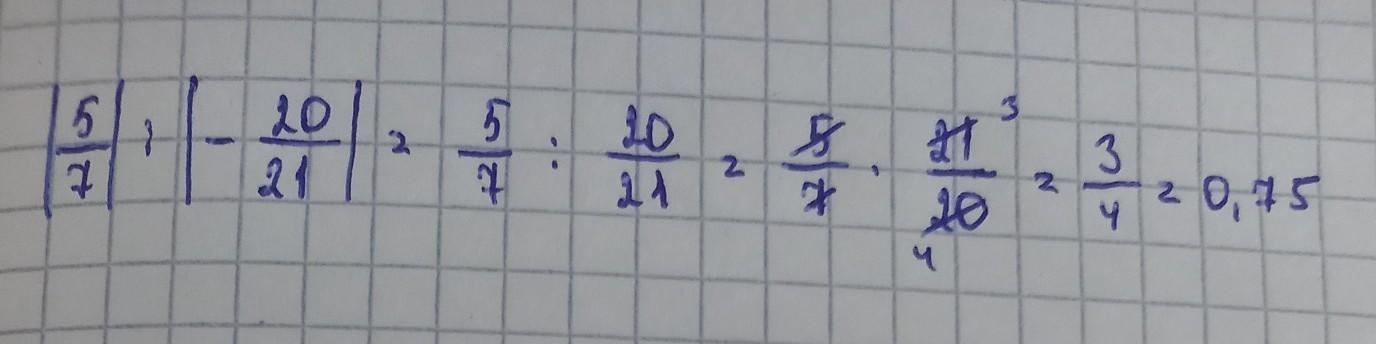 |5/7| : |- 20/21| = 5/7 : 20/21 = 5/7 · 21/20 3 4 = 3/4 = 0,75